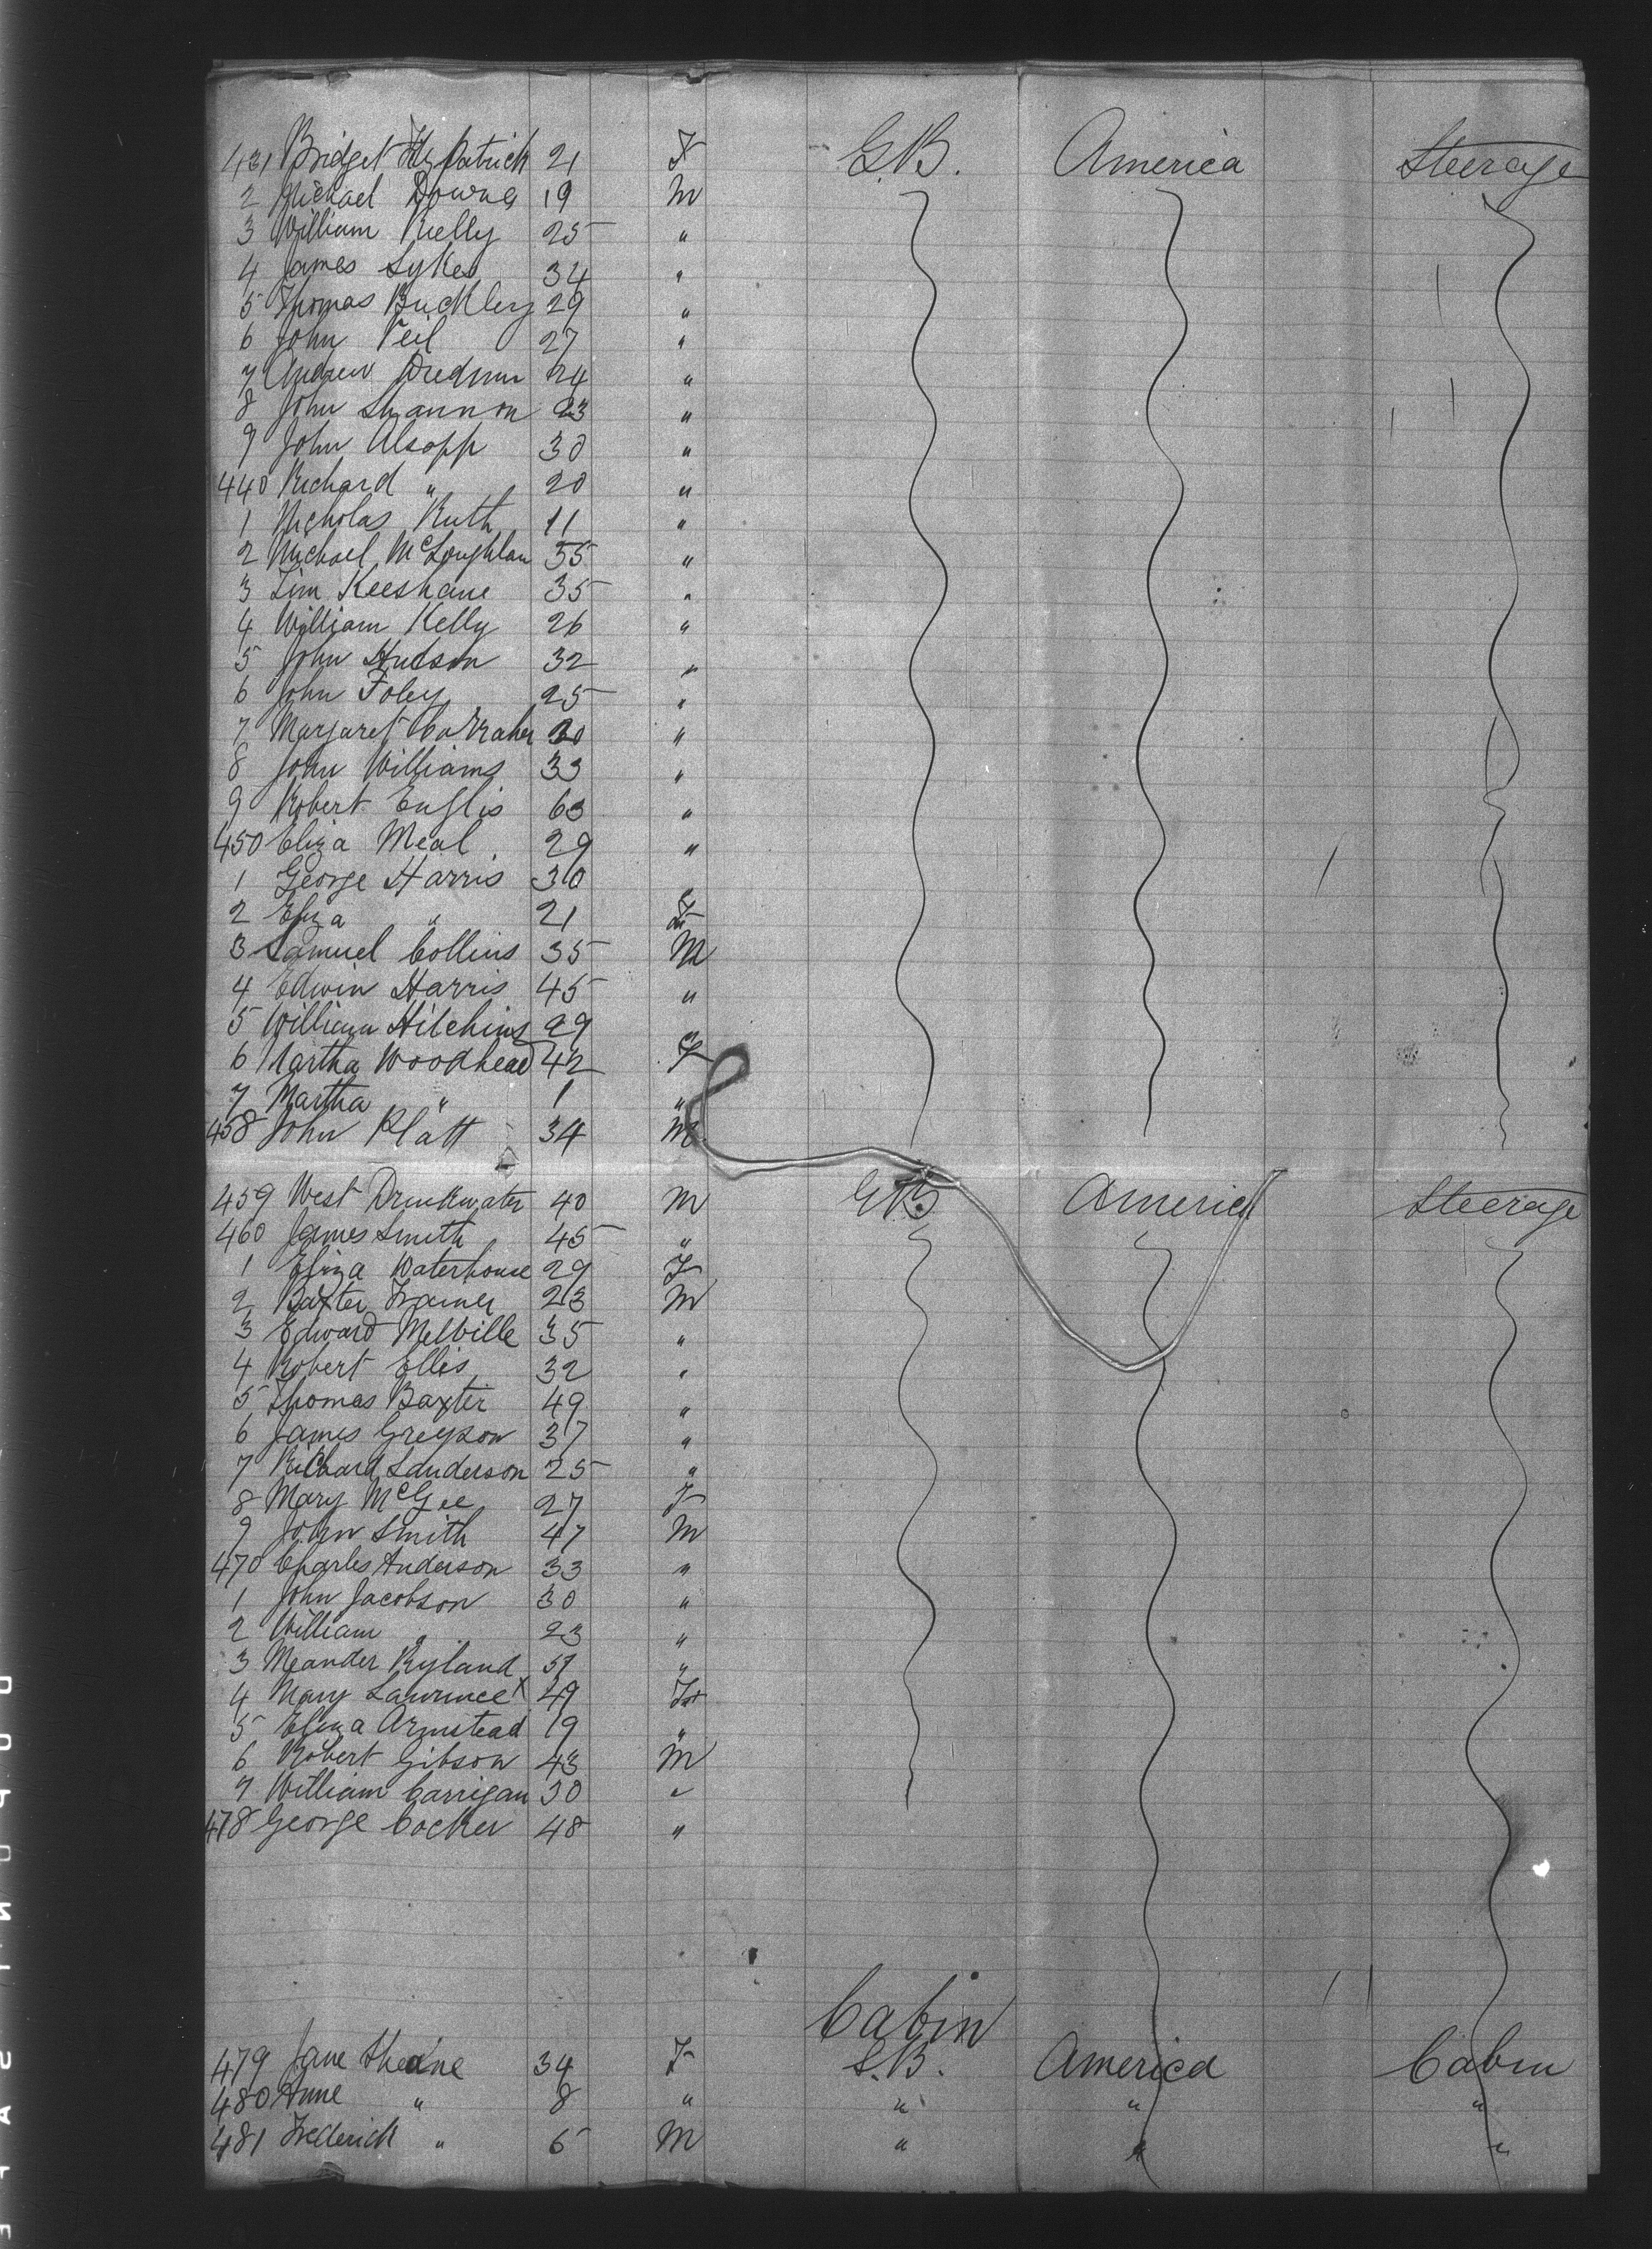 431 Bridget Fitzpatrick 21 F G.B. America Steerage
2 Michael Downes 19 M
3 William Kelly 25 "
4 James Sykes 34 "
5 Thomas Buckley 29 "
6 John Veil 27 "
7 Andrew 24 "
8 John Shannon 23 "
9 John Alsopp 30 "
440 Richard " 20 "
1 Nicholas Ruth 11 "
2 Michael McLoughlan 35 "
3 Tim Keeshane 35 "
4 William Kelly 26 "
5 John Hudson 32 "
6 John Foley 25 "
7 Margaret "
8 John Williams 33 "
9 Robert Englis 63 "
450 Eliza Meal 29 "
1 George Harris 30
2 Eliza " 21 F
3 Samuel Collins 35 M
4 Edwin Harris 45 "
5 William Hitchins 29
6 Martha Woodhead 42 F
7 Martha " 1 "
458 John Platt 34 M
459 West Drinkwater 40 M G.B. America Steerage
460 James Smith 45 "
1 Eliza Waterhouse 29 F
2 Baxter 23 M
3 Edward Melville 35 "
4 Robert Ellis 32 "
5 Thomas Baxter 49 "
6 James Greyson 37 "
7 Richard Sanderson 25 "
8 Mary McGee 27 F
9 John Smith 47 M
470 Charles Anderson 33 "
1 John Jacobson 30 "
2 William " 23 "
3 Meander Ryland "
4 Mary Lawrence x 49 F
5 Eliza Armstead 19 "
6 Robert Gibson 43 M
7 William Carrigan 30 "
478 George Cocker 48 "
Cabin
479 Jane 34 F G.B. America Cabin
480 Anne " 8 " " " "
481 Frederick " 6 M " " "